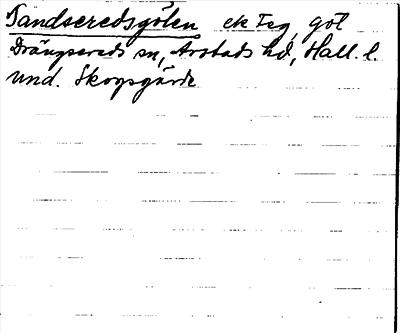 Tandseredsgölen ek Teg, göl
Drängsereds sn, Årstads hd, Hall. l.
und. Skogsgärde